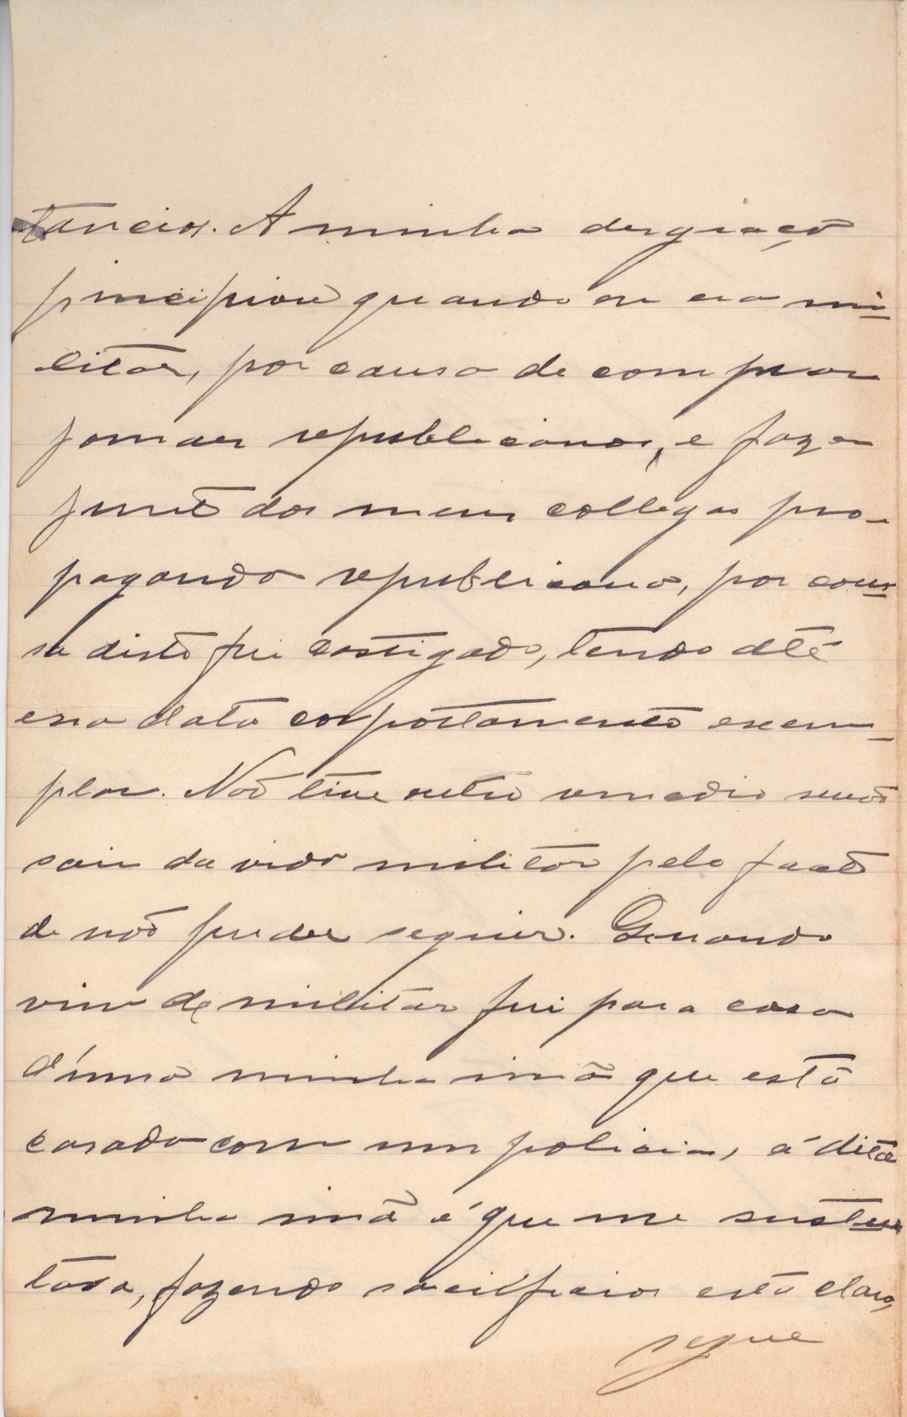 tancias. A minha desgraça
principiou quando eu era mi-
litar, por causa de comprar
jornaes republicanos, e fazer
junto dos meus collegas pro-
paganda republicana, por cau-
sa disto fui castigado, tendo até
essa data comportamento exem-
plar. Não tive outro remedio senão
sair da vida militar pelo facto
de não puder seguir. Quando
vim de militar fui para casa
d'uma minha irmã que está
casada com um policia, a dita
minha irmã é que me susten
tava, fazendo sacrificios está claro,
segue